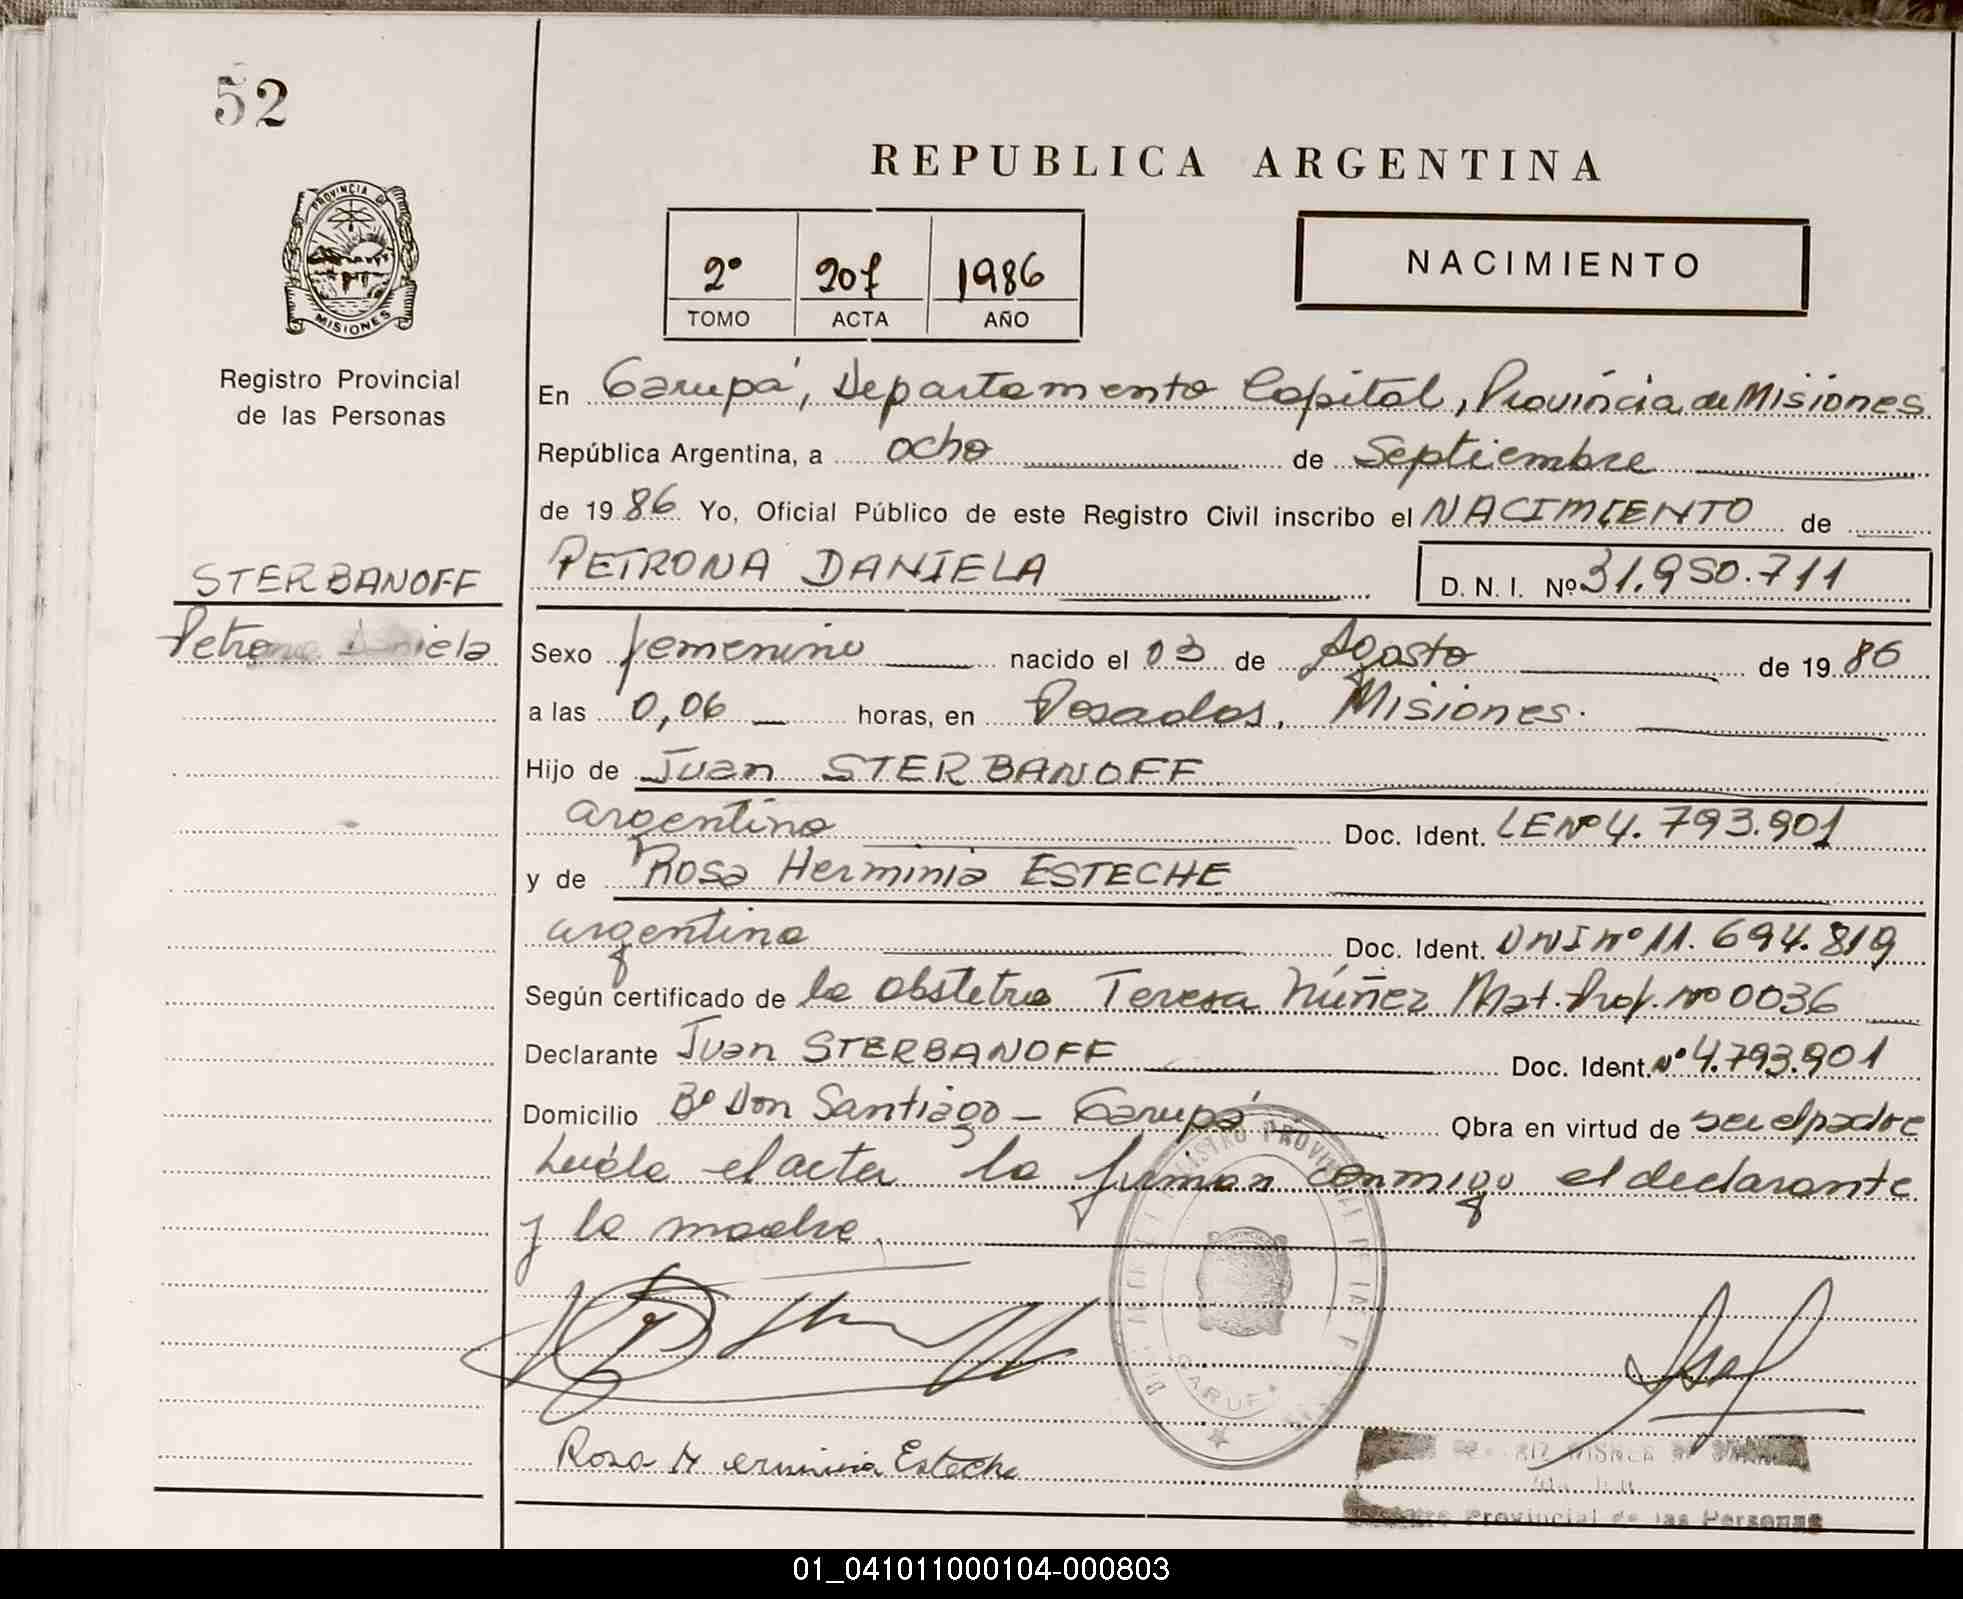 52
REPUBLICA ARGENTINA
PROVINCIA DE
MISIONES
Registro Provincial
de las Personas
2º 207 1986
TOMO ACTA AÑO
NACIMIENTO
En Garupá, Departamento Capital, Provincia de Misiones
República Argentina, a ocho de Septiembre
de 1986 Yo, Oficial Público de este Registro Civil inscribo el NACIMIENTO de
PETRONA DANIELA D. N. I. Nº 31.950.711
STERBANOFF
Petrona Daniela
Sexo femenino nacido el 03 de Agosto de 1986
a las 0,06 horas, en Posadas, Misiones.
Hijo de Juan STERBANOFF
argentino Doc. Ident. LE Nº 4.793.901
y de Rosa Herminia ESTECHE
argentina Doc. Ident. DNI Nº 11.694.819
Según certificado de la obstetra Teresa Núñez Mat. Prof. nº 0036
Declarante Juan STERBANOFF Doc. Ident. Nº 4.793.901
Domicilio Bº Don Santiago - Garupá Obra en virtud de ser el padre
Leída el acta la firman conmigo el declarante
y la madre.
Rosa Herminia Esteche
Provincial de las Personas
01_041011000104-000803